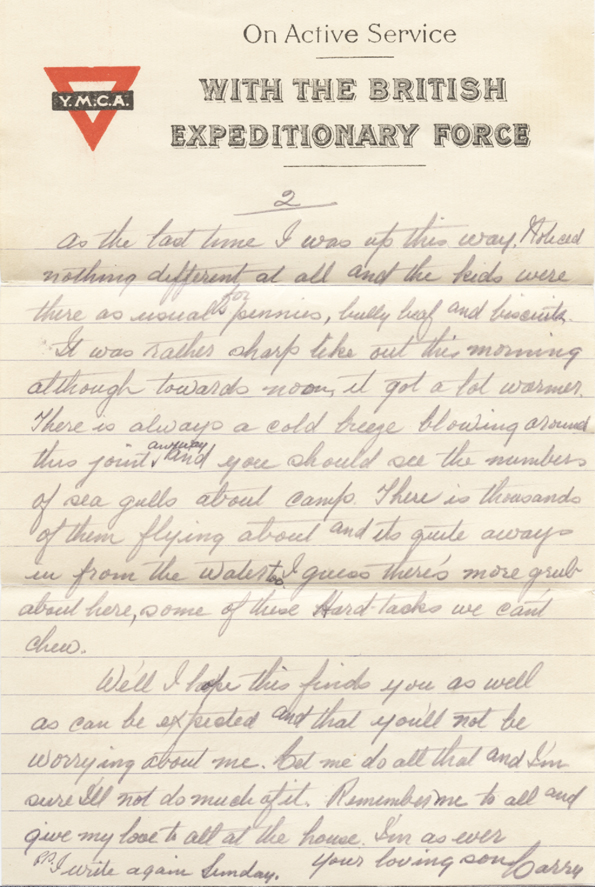 On Active Service
WITH THE BRITISH
Y.M.C.A.
EXPEDITIONARY FORCE
2
as the last time I was up this way. Noticed
nothing different at all and the kids were
there as usual for pennies, bully beef and biscuits.
It was rather sharp like out this morning
although towards noon, it got a lot warmer.
There is always a cold breeze blowing around
this joint anyway and you should see the numbers
of sea gulls about camp. There is thousands
of them flying about and its quite aways
in from the water too. I guess there's more grub
about here, some of these Hard-tacks we can't
chew.
We'll I hope this finds you as well
as can be expected and that you'll not be
worrying about me. Let me do all that and I'm
sure I'll not do much of it. Remember me to all and
give my love to all at the house. I'm as ever
your loving son Harry
PS. I write again Sunday.